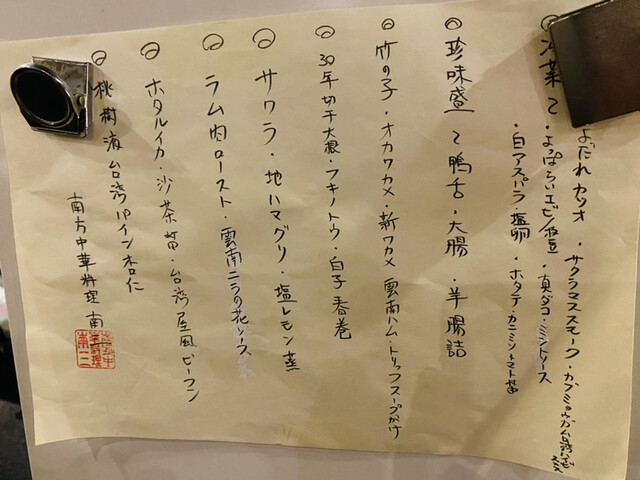 ◎冷菜 〜 よだれカツオ ・サクラマススモーク・カブ
・よっぱらいエビ ・真ダコ・ミントソース
・白アスパラ・塩卵 ・ホタテ・カニミソトマト
◎珍味盛 〜 鴨舌・大腸・羊腸詰
◎竹の子・オカワカメ・新ワカメ 雲南ハム・トリップスープがけ
◎30年切干大根・フキノトウ・白子春巻
◎サワラ・地ハマグリ・塩レモン蒸
◎ラム肉ロースト・雲南ニラの花ソース
◎ホタルイカ・沙茶醤・台湾屋風ビーフン
◎桃樹液 台湾パイン杏仁
南方中華料理 南